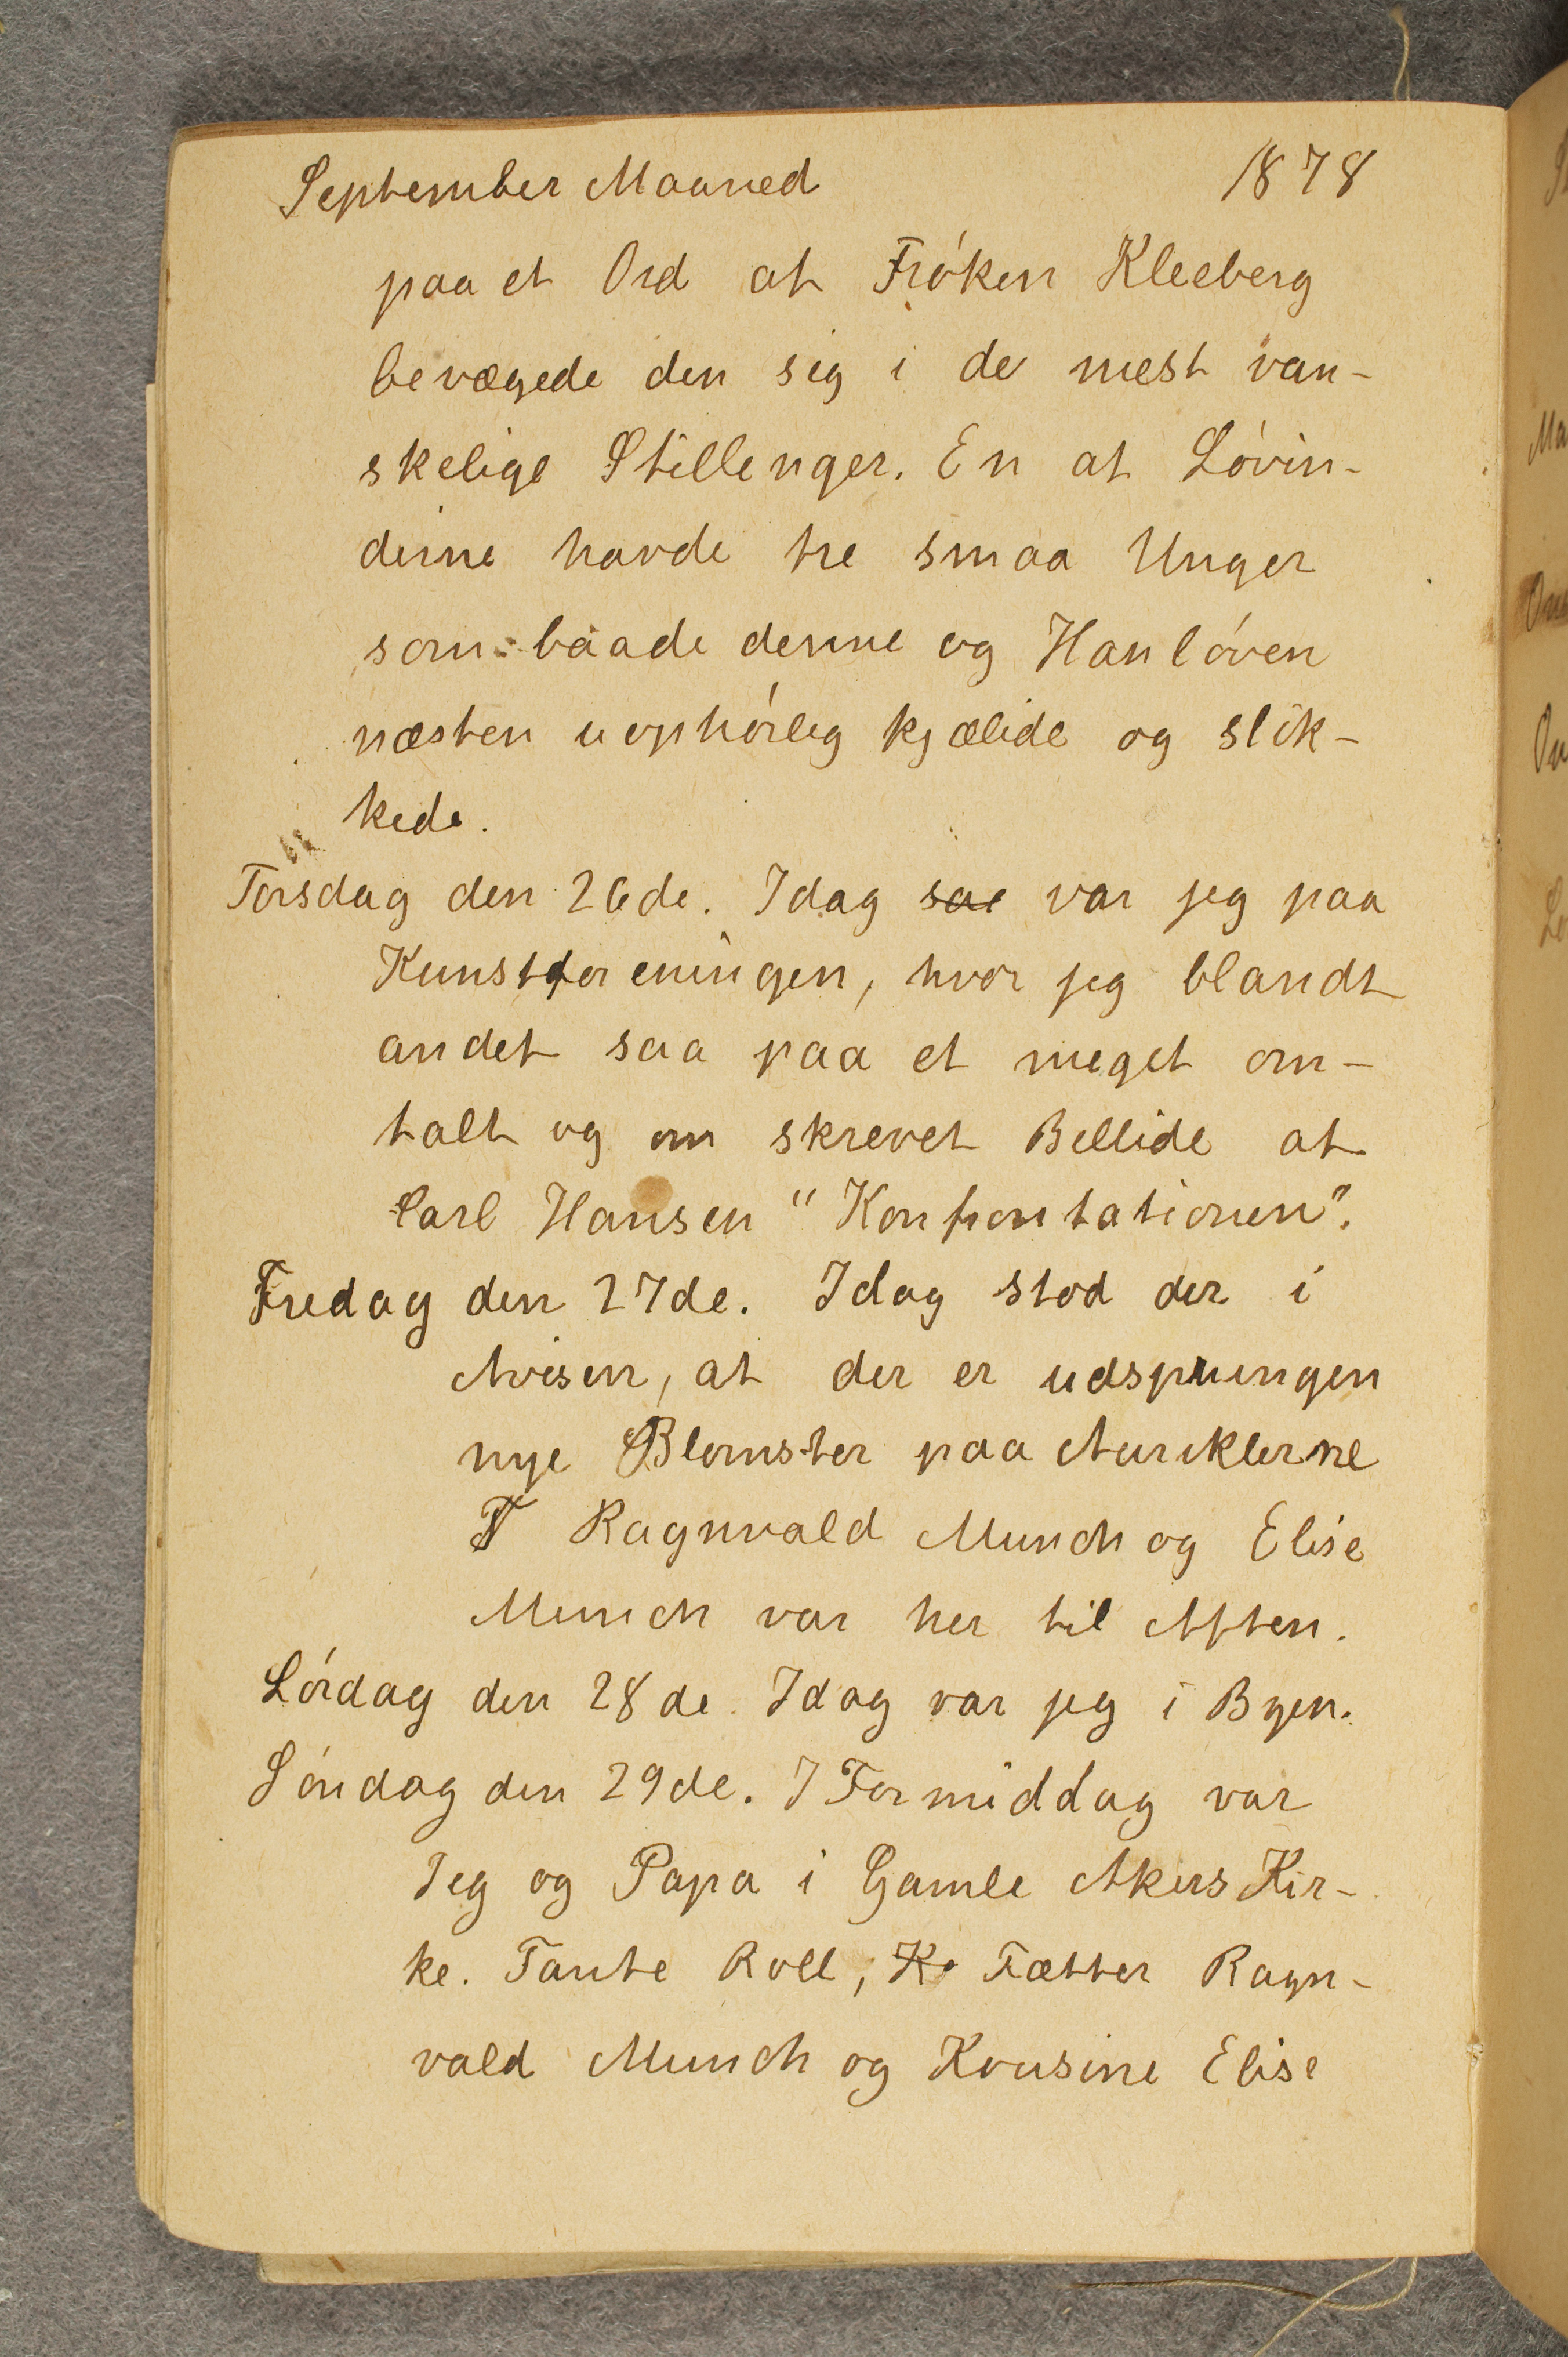 September Maaned 1878
paa et Ord af Frøken Kleeberg
bevægede den sig i de mest van-
skelige Stillenger. En af Løvin-
derne havde tre smaa Unger
som baade denne og Hanløven
næsten uophørlig kjælede og slik-
kede.
Torsdag den 26de. Idag sae var jeg paa
Kunstforeningen, hvor jeg blandt
andet saa paa et meget om-
talt og om skrevet Bellide af
Carl Hansen "Konfrontationen".
Fredag den 27de. Idag stod der i
Avisen, at der er udsprungen
nye Blomster paa Auriklerne
Ragnvald Munch og Elise
Munch var her til Aften.
Lørdag den 28de. Idag var jeg i Byen.
Søndag den 29de. I Formiddag var
Jeg og Papa i Gamle Akers Kir-
ke. Tante Roll, K Fætter Ragn-
vald Munch og Kousine Elise